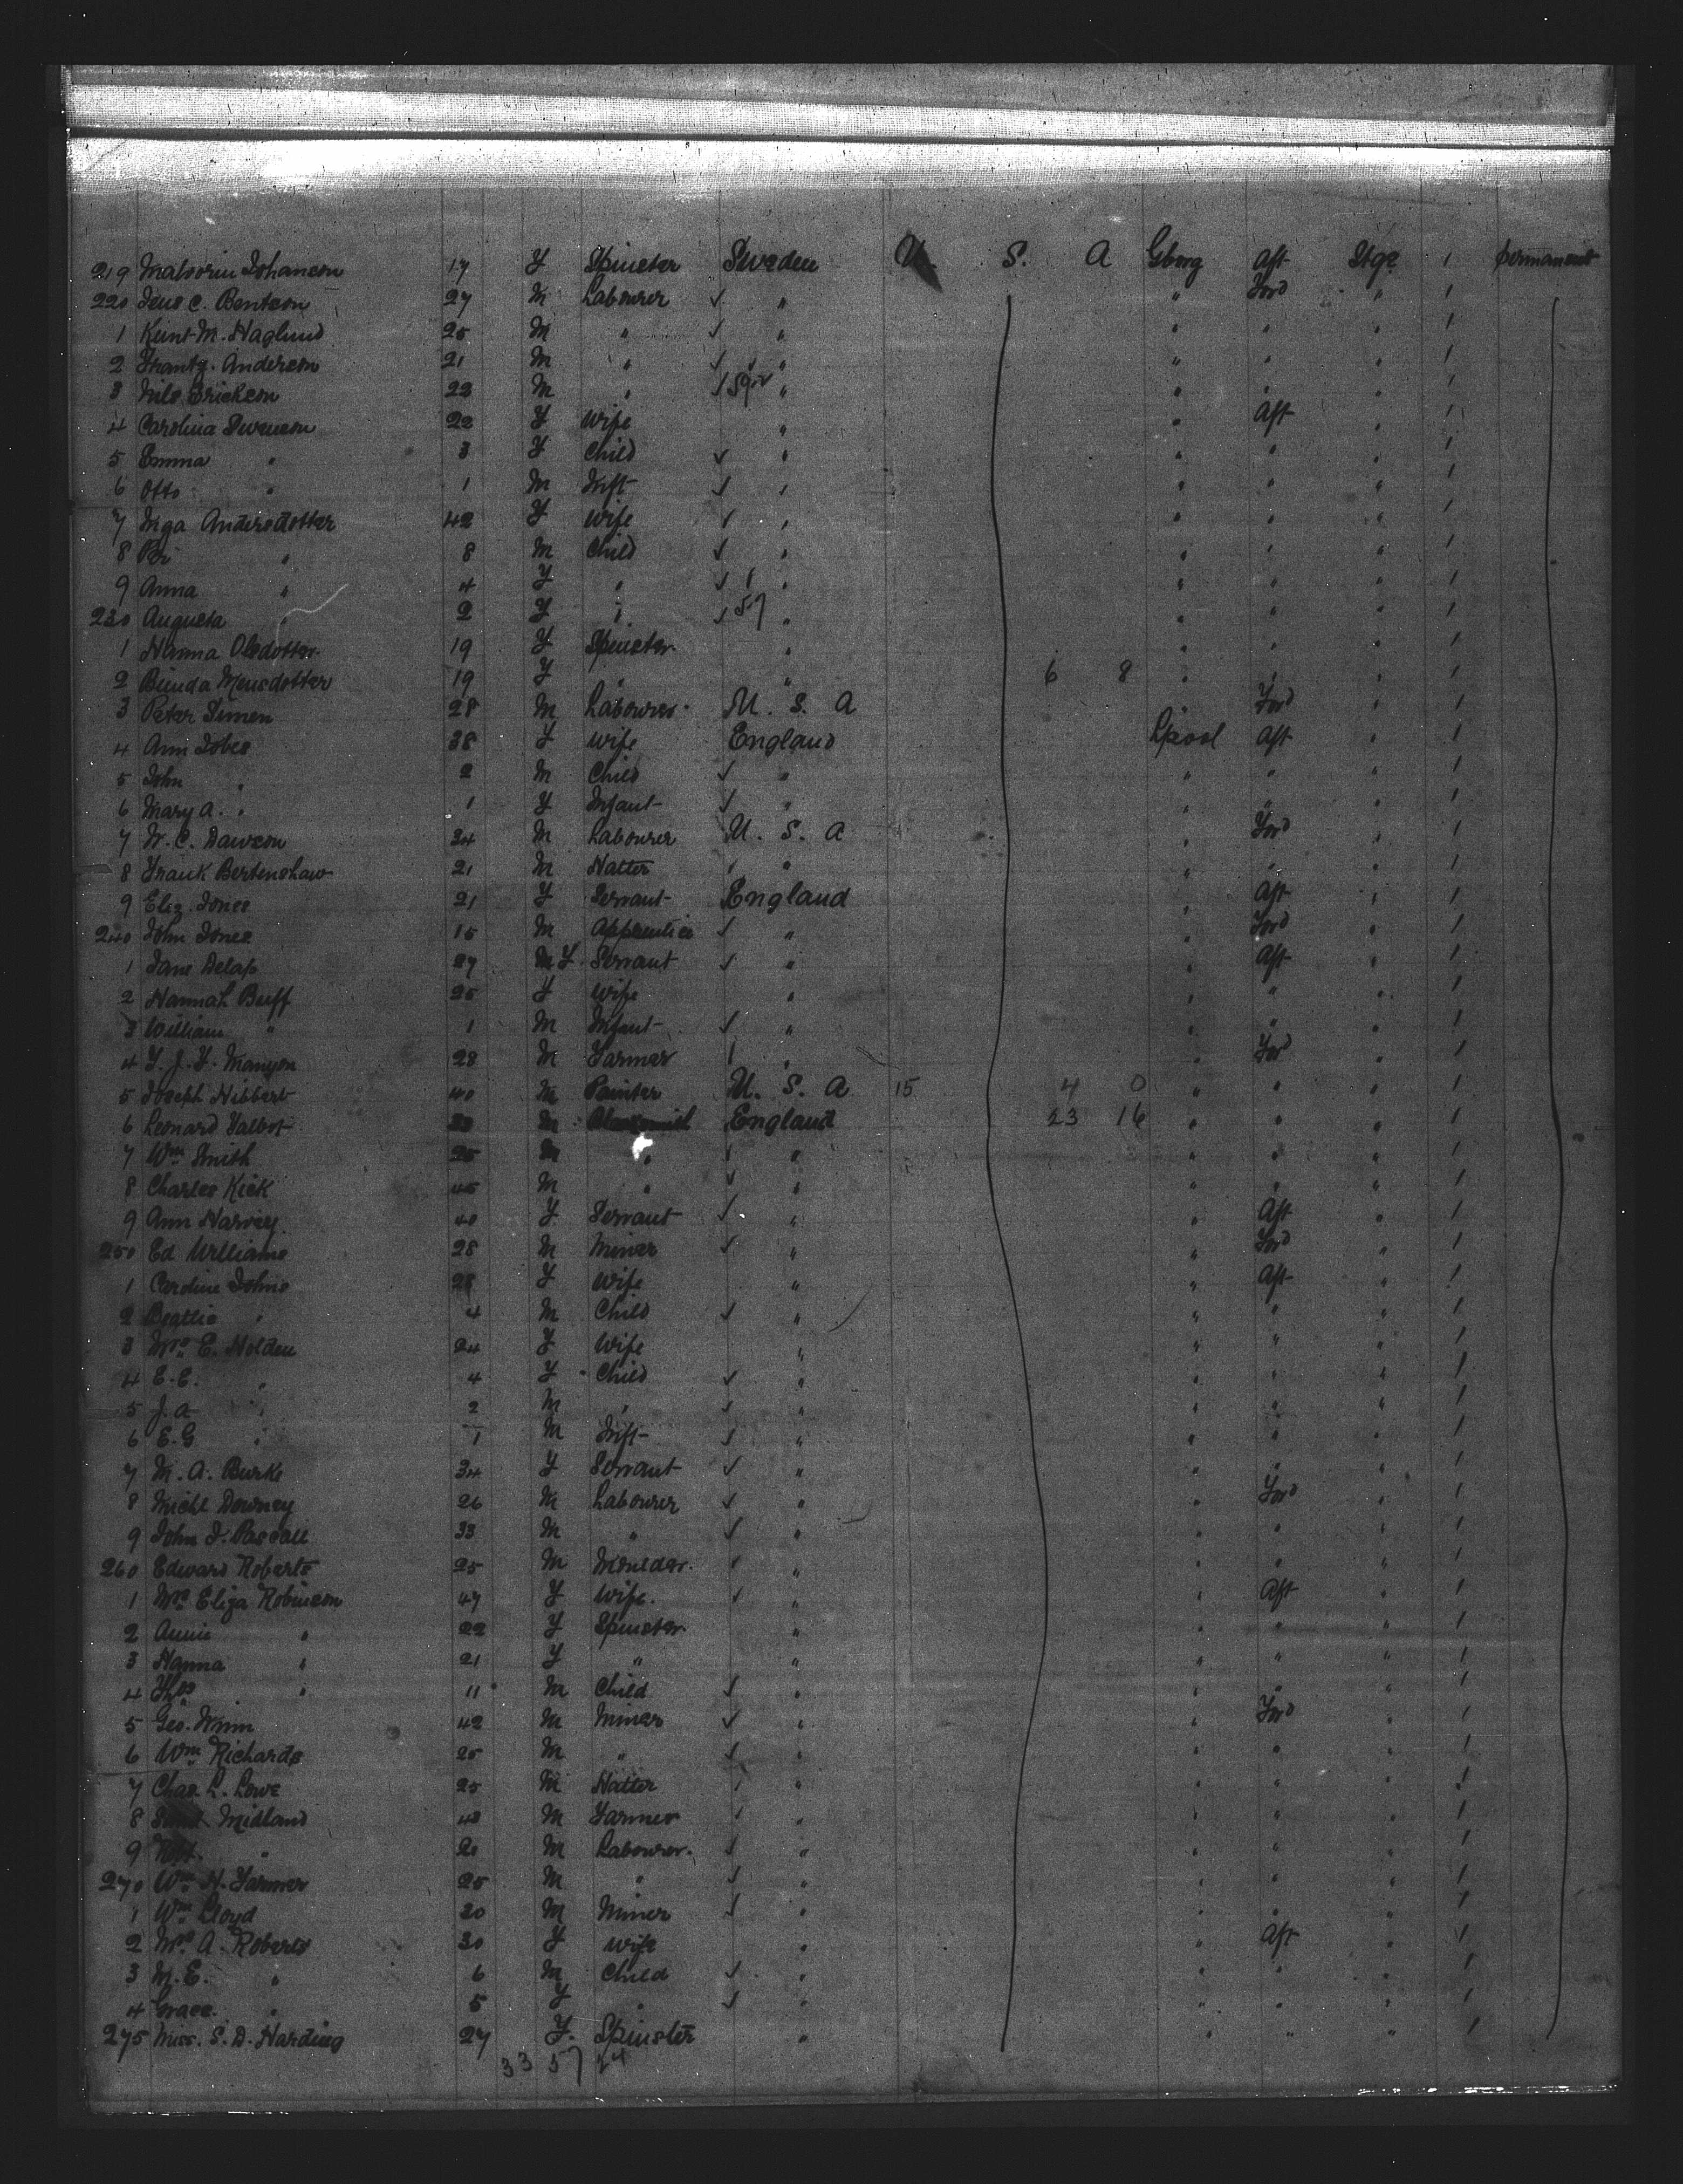 219 Johanson 17 F Spinster Sweden U. S. A Gborg Aft Stge 1 permanent
220 Jens C. Bentson 27 M Labourer ✓ " " Ford " 1
1 Knut M. Haglund 25 M " ✓ " " " " 1
2 Frantz. Anderson 21 M " ✓ " " " " 1
3 Nils Erickson 22 M " ✓ " " " " 1
4 Carolina Swenson 22 F Wife " " Aft " 1
5 Emma " 3 F Child ✓ " " " " 1
6 Otto " 1 M Inft ✓ " " " " 1
7 Inga Andersdotter 42 F Wife ✓ " " " " 1
8 Per " 8 M Child ✓ " " " " 1
9 Anna " 4 F " ✓ " " " " 1
230 Augusta " 2 F " ✓ 57 " " " " 1
1 Hanna Olsdotter 19 F Spinster " " " " 1
2 Monsdotter 19 F " " 6 8 " " " 1
3 Peter Simen 28 M Labourer U. S. A Ford " 1
4 Ann Jobes 38 F Wife England Lpool Aft " 1
5 John " 2 M Child ✓ " " " " 1
6 Mary A. " 1 F Infant ✓ " " " " 1
7 W. C. Dawson 34 M Labourer U. S. A " Ford " 1
8 Frank Bertenshaw 21 M Hatter ✓ " " " " 1
9 Eliz. Jones 21 F Servant England " Aft " 1
240 John Jones 15 M Apprentice ✓ " " Ford " 1
1 Jane Delap 27 F Servant ✓ " " Aft " 1
2 Hannah Buff 25 F Wife " " " " 1
3 William " 1 M Infant ✓ " " " " 1
4 T. J. F. Manyon 28 M Farmer ✓ " " Ford " 1
5 Joseph Hibbert 40 M Painter U. S. A 15 4 0 " " " 1
6 Leonard Talbot M England 23 16 " " " 1
7 Wm Smith 25 M " ✓ " " " " 1
8 Charles Kick 45 M " ✓ " " " " 1
9 Ann Harvey 40 F Servant ✓ " " Aft " 1
250 Ed Williams 28 M Miner ✓ " " Ford " 1
1 Caroline Johns 28 F Wife " " Aft " 1
2 Beattie " 4 M Child ✓ " " " " 1
3 Mrs E. Holden 24 F Wife " " " " 1
4 E. E. " 4 F Child ✓ " " " " 1
5 J. A " 2 M " ✓ " " " " 1
6 E. G " 1 M Inft ✓ " " " " 1
7 M. A. Burke 34 F Servant ✓ " " " " 1
8 Michl Downey 26 M Labourer ✓ " " Ford " 1
9 John J. Pascall 33 M " ✓ " " " " 1
260 Edward Roberts 25 M Moulder ✓ " " " " 1
1 Mrs Eliza Robinson 47 F Wife ✓ " " Aft " 1
2 Annie " 22 F Spinster " " " " 1
3 Hanna " 21 F " " " " " 1
4 Thos " 11 M Child ✓ " " " " 1
5 Geo. Winn 42 M Miner ✓ " " Ford " 1
6 Wm Richards 25 M " ✓ " " " " 1
7 Chas L. Lowe 25 M Hatter ✓ " " " " 1
8 Midland M Farmer ✓ " " " " 1
9 Robt. " M Labourer ✓ " " " " 1
270 Wm H. Farmer 25 M " ✓ " " " " 1
1 Wm Lloyd 20 M Miner ✓ " " " " 1
2 Mrs A. Roberts 30 F Wife " " Aft " 1
3 M. E. " 6 M Child ✓ " " " " 1
4 Grace " 5 F " ✓ " " " " 1
275 Miss. S. D. Harding 27 F. Spinster " " " " 1
33 57 24